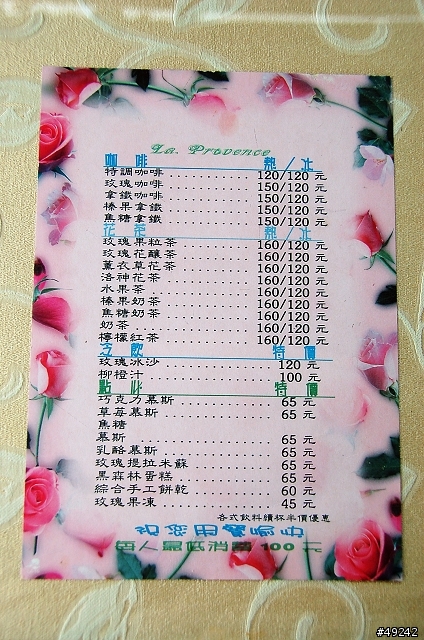 La Provence
咖啡 熱/冰
特調咖啡 120/120 元
玫瑰咖啡 150/120 元
拿鐵咖啡 150/120 元
榛果拿鐵 150/120 元
焦糖拿鐵 150/120 元
花茶 熱/冰
玫瑰果粒茶 160/120 元
玫瑰花釀茶 160/120 元
薰衣草花茶 160/120 元
洛神花茶 160/120 元
水果茶 160/120 元
榛果奶茶 160/120 元
焦糖奶茶 160/120 元
奶茶 160/120 元
檸檬紅茶 160/120 元
冷飲 特價
玫瑰冰沙 120 元
柳橙汁 100 元
點心 特價
巧克力慕斯 65 元
草莓慕斯 65 元
焦糖
慕斯 65 元
乳酪慕斯 65 元
玫瑰提拉米蘇 65 元
黑森林蛋糕 65 元
綜合手工餅乾 60 元
玫瑰果凍 45 元
各式飲料續杯半價優惠
每人最低消費100元
#49242